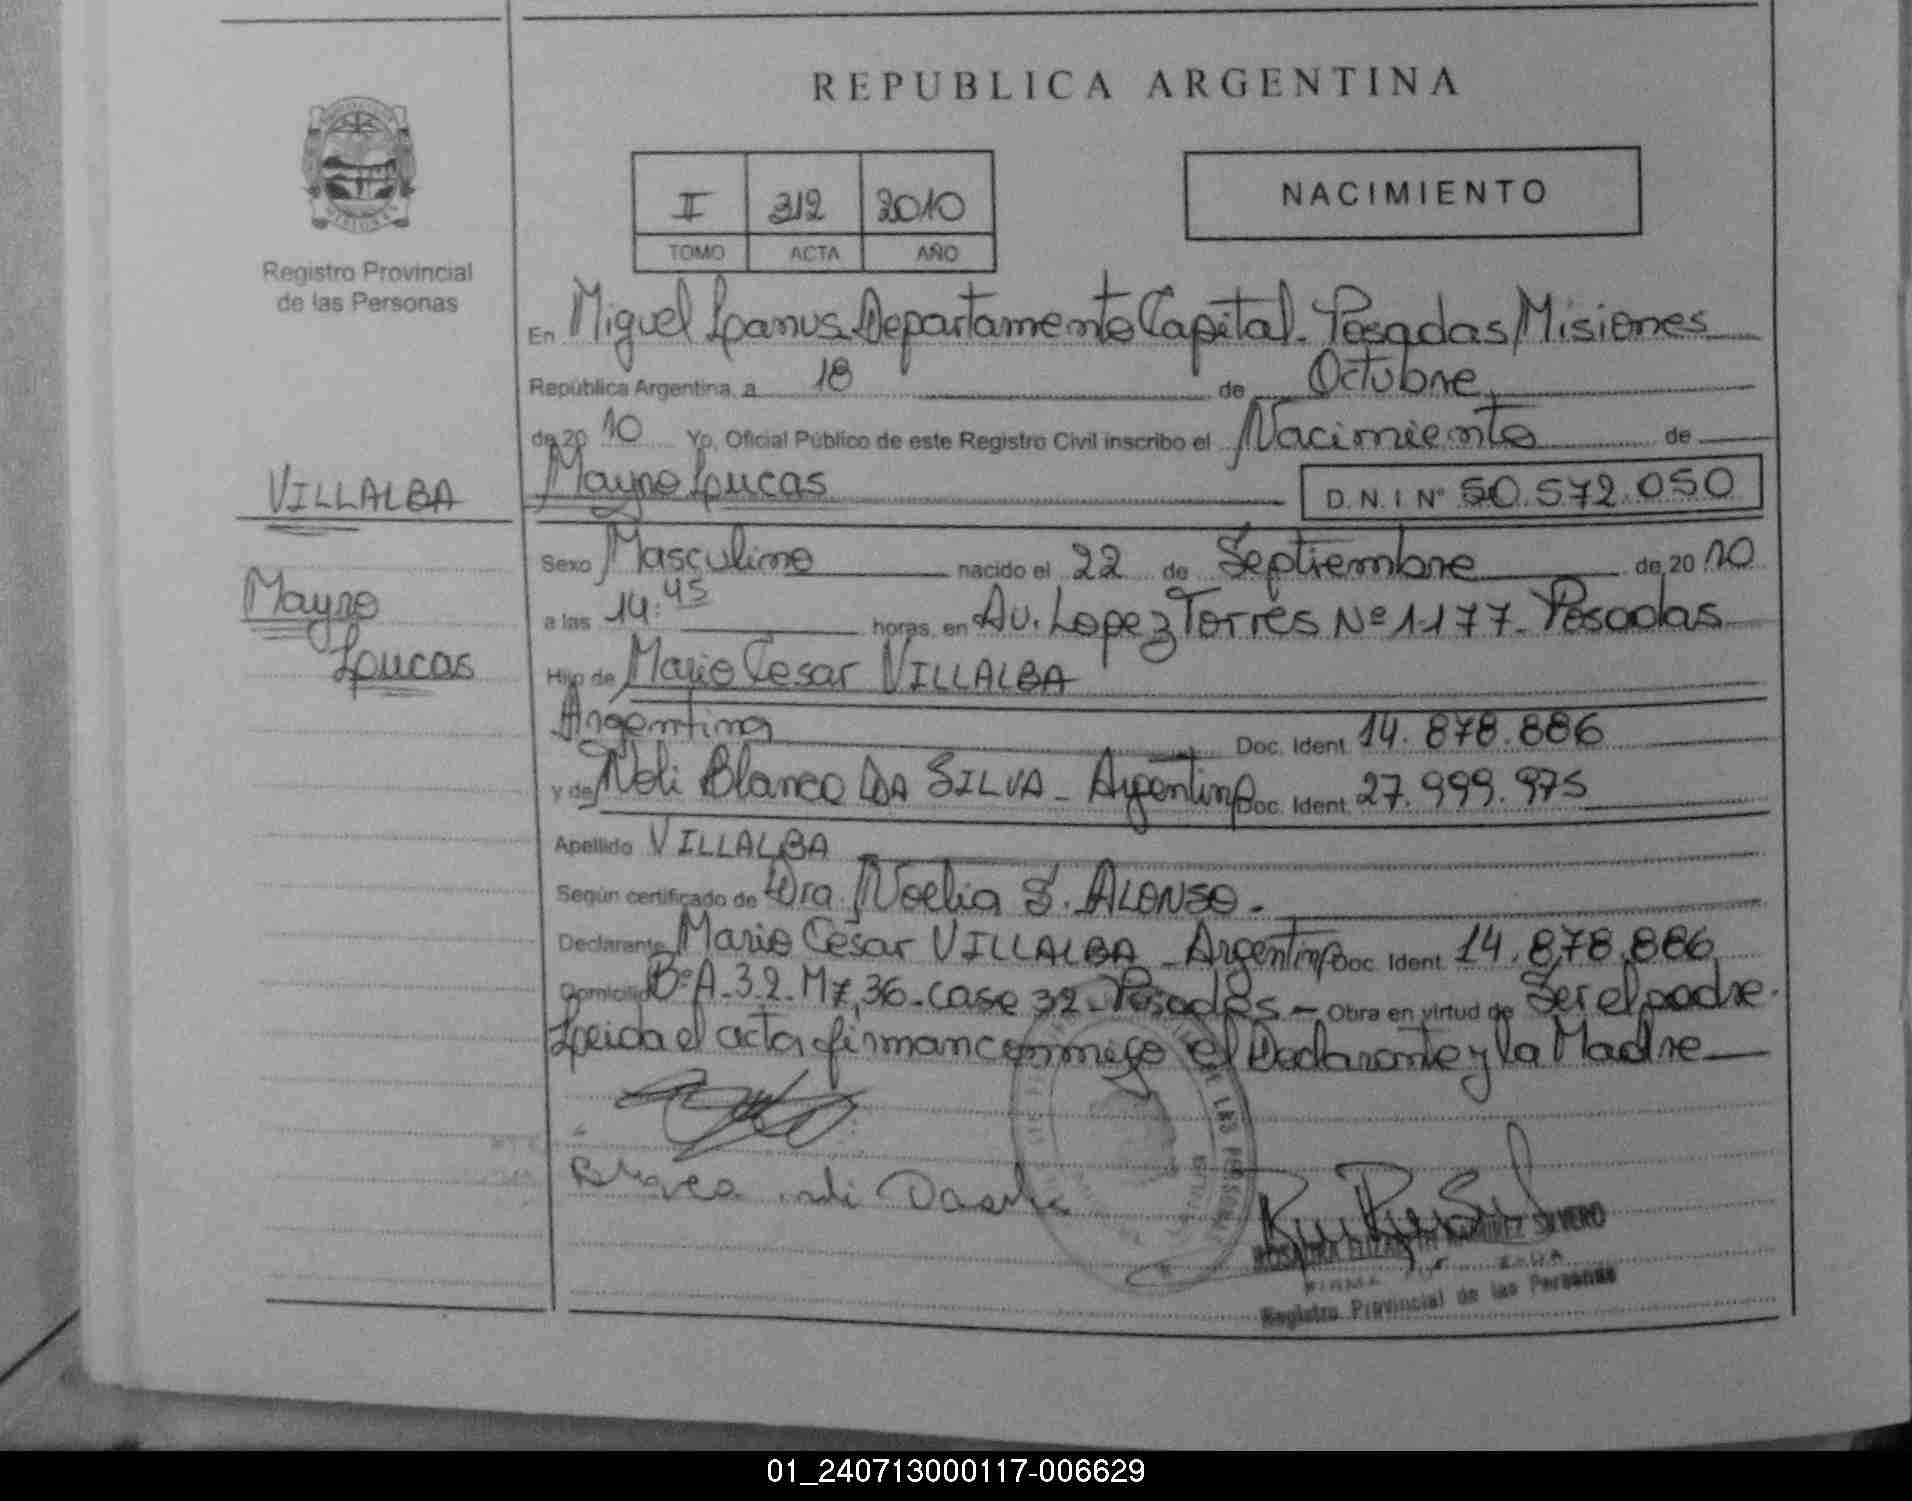 REPUBLICA ARGENTINA
II 312 2010
TOMO ACTA AÑO
NACIMIENTO
Registro Provincial
de las Personas
VILLALBA
Mayro
Lucas
En Miguel Lanus Departamento Capital. Posadas, Misiones
República Argentina, a 18 de Octubre
de 20 10 Yo, Oficial Público de este Registro Civil inscribo el Nacimiento de
Mayro Lucas D.N.I Nº 50.572.050
Sexo Masculino nacido el 22 de Septiembre de 20 10
a las 14:45 horas, en Av. Lopez Torres Nº 1177 - Posadas
Hijo de Mario Cesar VILLALBA
Argentina Doc. Ident. 14.878.886
y de Noli Blanca DA SILVA - Argentina Doc. Ident. 27.999.975
Apellido VILLALBA
Según certificado de Dra. Noelia S. ALONSO.-
Declarante Mario Cesar VILLALBA - Argentina Doc. Ident. 14.878.886
Domicilio Bº A-3.2-M7,36-case 32 Posadas - Obra en virtud de Ser el padre.
Leida el acta firman conmigo el Declarante y la Madre
Blanca Da
RAMIREZ SILVERO
Registro Provincial de las Personas
01_240713000117-006629